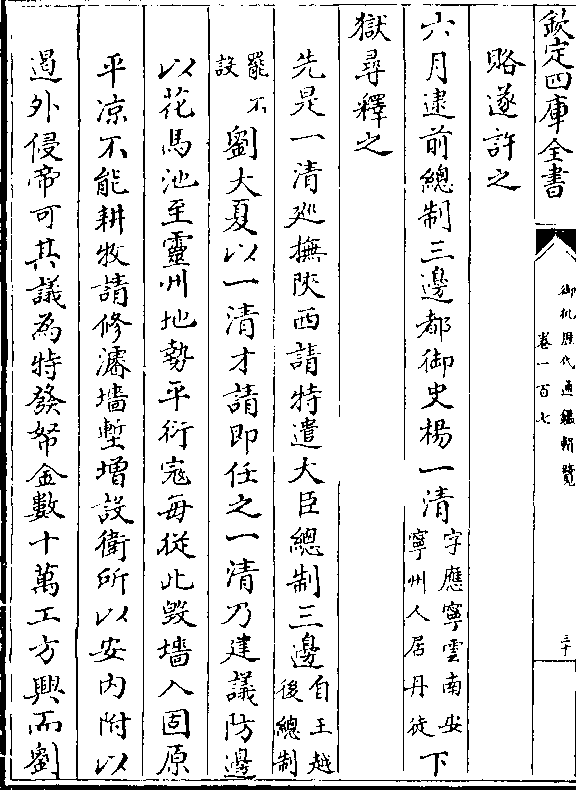 欽定四庫全書
御批歷代通鑑輯覽
卷一百七
三十
賂遂許之
六月逮前總制三邊都御史楊一清字應寧雲南安寧州人居丹徒下
獄尋釋之
先是一清廵撫陝西請特遣大臣總制三邊自王越後總制
罷不設劉大夏以一清才請即任之一清乃建議防邊
以花馬池至靈州地勢平衍宼每從此毀墻入固原
平凉不能耕牧請修濬墻塹增設衛所以安内附以
遏外侵帝可其議為特發帑金數十萬工方興而劉